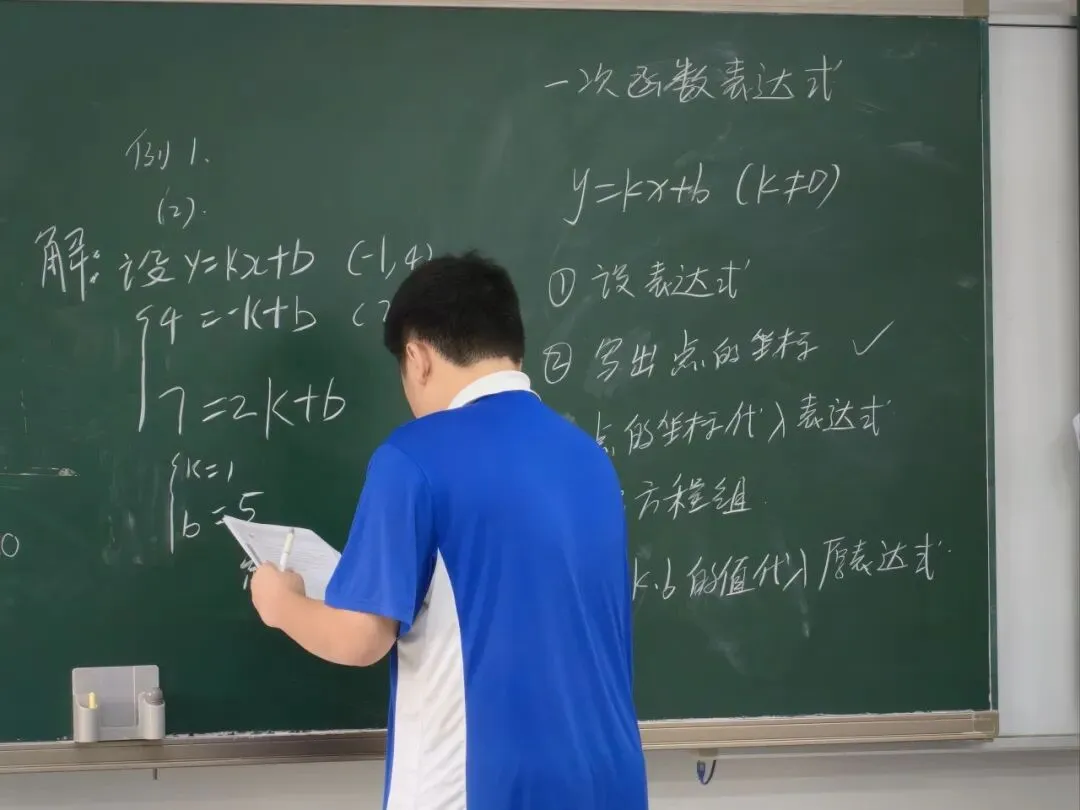 例1.
(2).
解: 设 y=kx+b (-1,4)
4=-k+b (
7=2k+b
k=1
b=5
0
一次函数表达式
y=kx+b (k≠0)
① 设表达式
② 写出点的坐标 ✓
点的坐标代入表达式
方程组.
k.b的值代入原表达式.